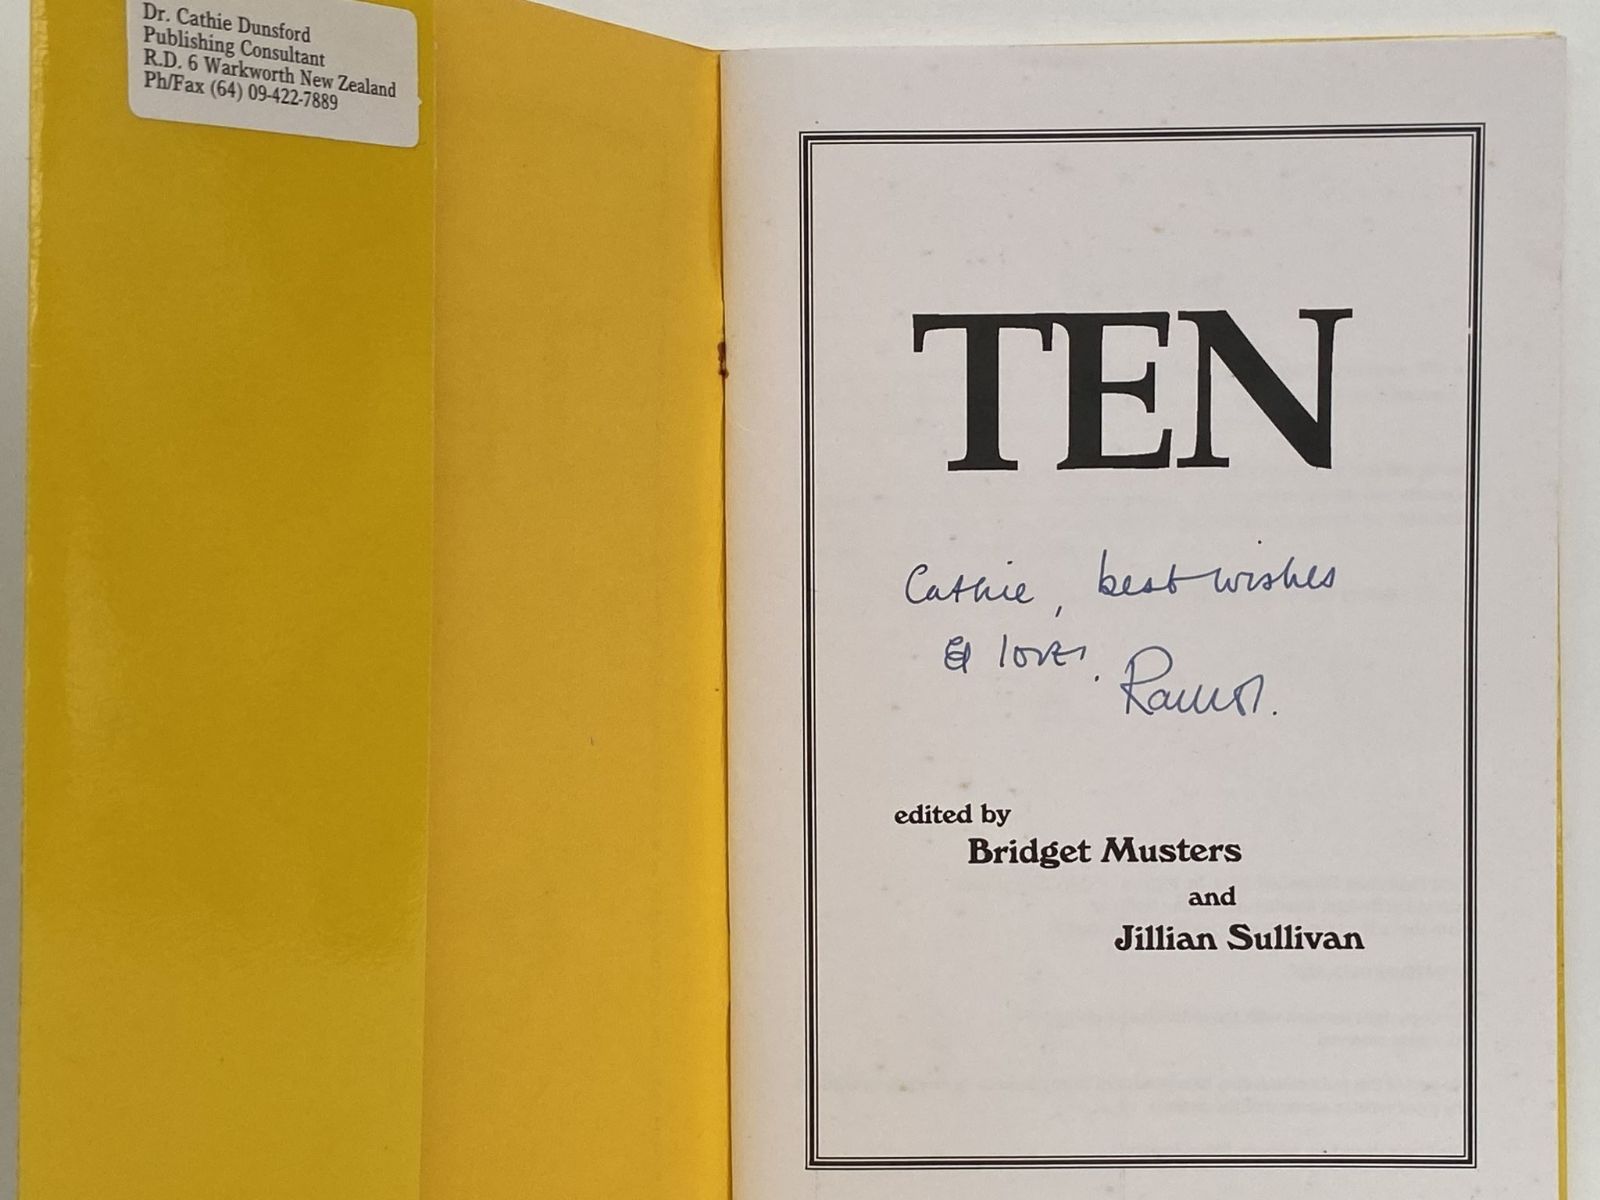 Dr. Cathie Dunsford
Publishing Consultant
R.D. 6 Warkworth New Zealand
Ph/Fax (64) 09-422-7889
TEN
Cathie, best wishes
& love.
edited by
Bridget Musters
and
Jillian Sullivan